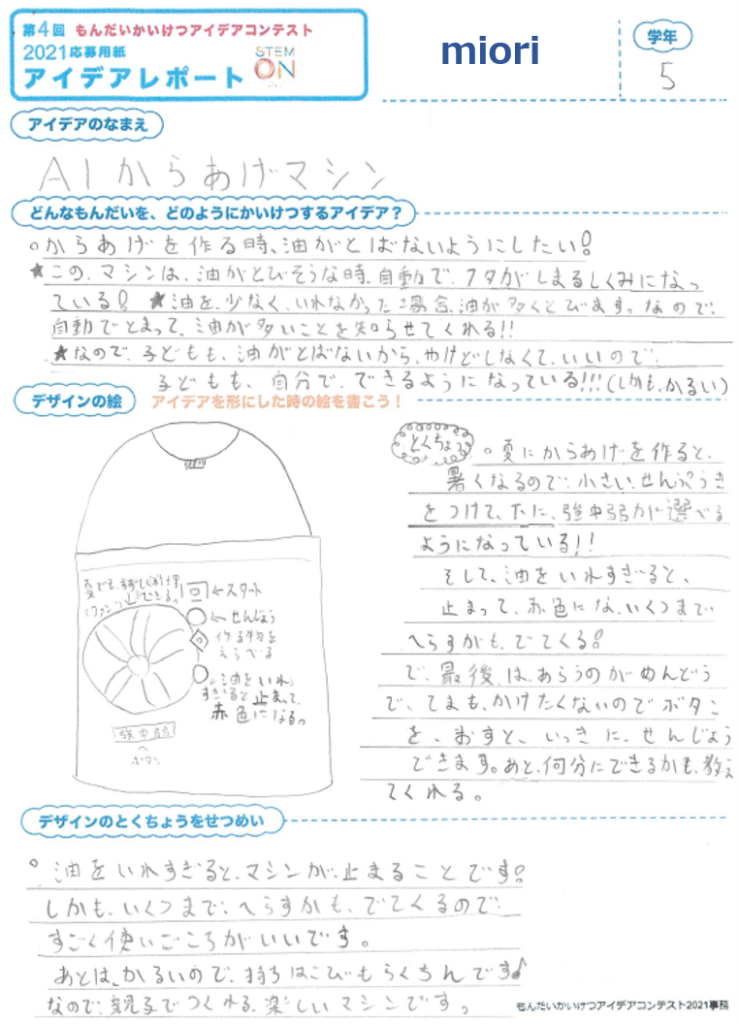 第4回 もんだいかいけつアイデアコンテスト
2021応募用紙
アイデアレポート
STEM
ON
miori
学年
5
アイデアのなまえ
AIからあげマシン
どんなもんだいを、どのようにかいけつするアイデア？
○からあげを作る時、油がとばないようにしたい!
★この、マシンは、油がとびそうな時、自動で、フタがしまるしくみになっ
ている! ★油を、少なく、いれなかった場合、油が多くとびます。なので、
自動でとまって、油が多いことを知らせてくれる!!
★なので、子どもも、油がとばないから、やけどしなくて、いいので、
子どもも、自分で、できるようになっている!!!(しかも、かるい)
デザインの絵
アイデアを形にした時の絵を書こう！
とくちょう
○夏にからあげを作ると、
暑くなるので、小さい、せんぷうき
をつけて、たに、強中弱が選べる
ようになっている!!
そして、油をいれすぎると、
止まって、赤色にな、いくつまで
へらすがも、でてくる!
で、最後は、あらうのがめんどう
で、てまも、かけたくないのでボタン
を、おすと、いっきに、せんじょう
できます。あと、何分にできるかも、教え
てくれる。
夏でも、すずしく
(ファン)
できる。
←スタート
←せんじょう
作る物を
えらべる
油をいれ
すぎると止まって、
赤色になる。
強中弱
ボタン
デザインのとくちょうをせつめい
○油をいれすぎると、マシンが、止まることです!
しかも、いくつまで、へらすかも、でてくるので、
すごく使いごころがいいです。
あとは、かるいので、持ちはこびもらくちんです♪
なので、親子でつくれる、楽しいマシンです。
もんだいかいけつアイデアコンテスト2021事務